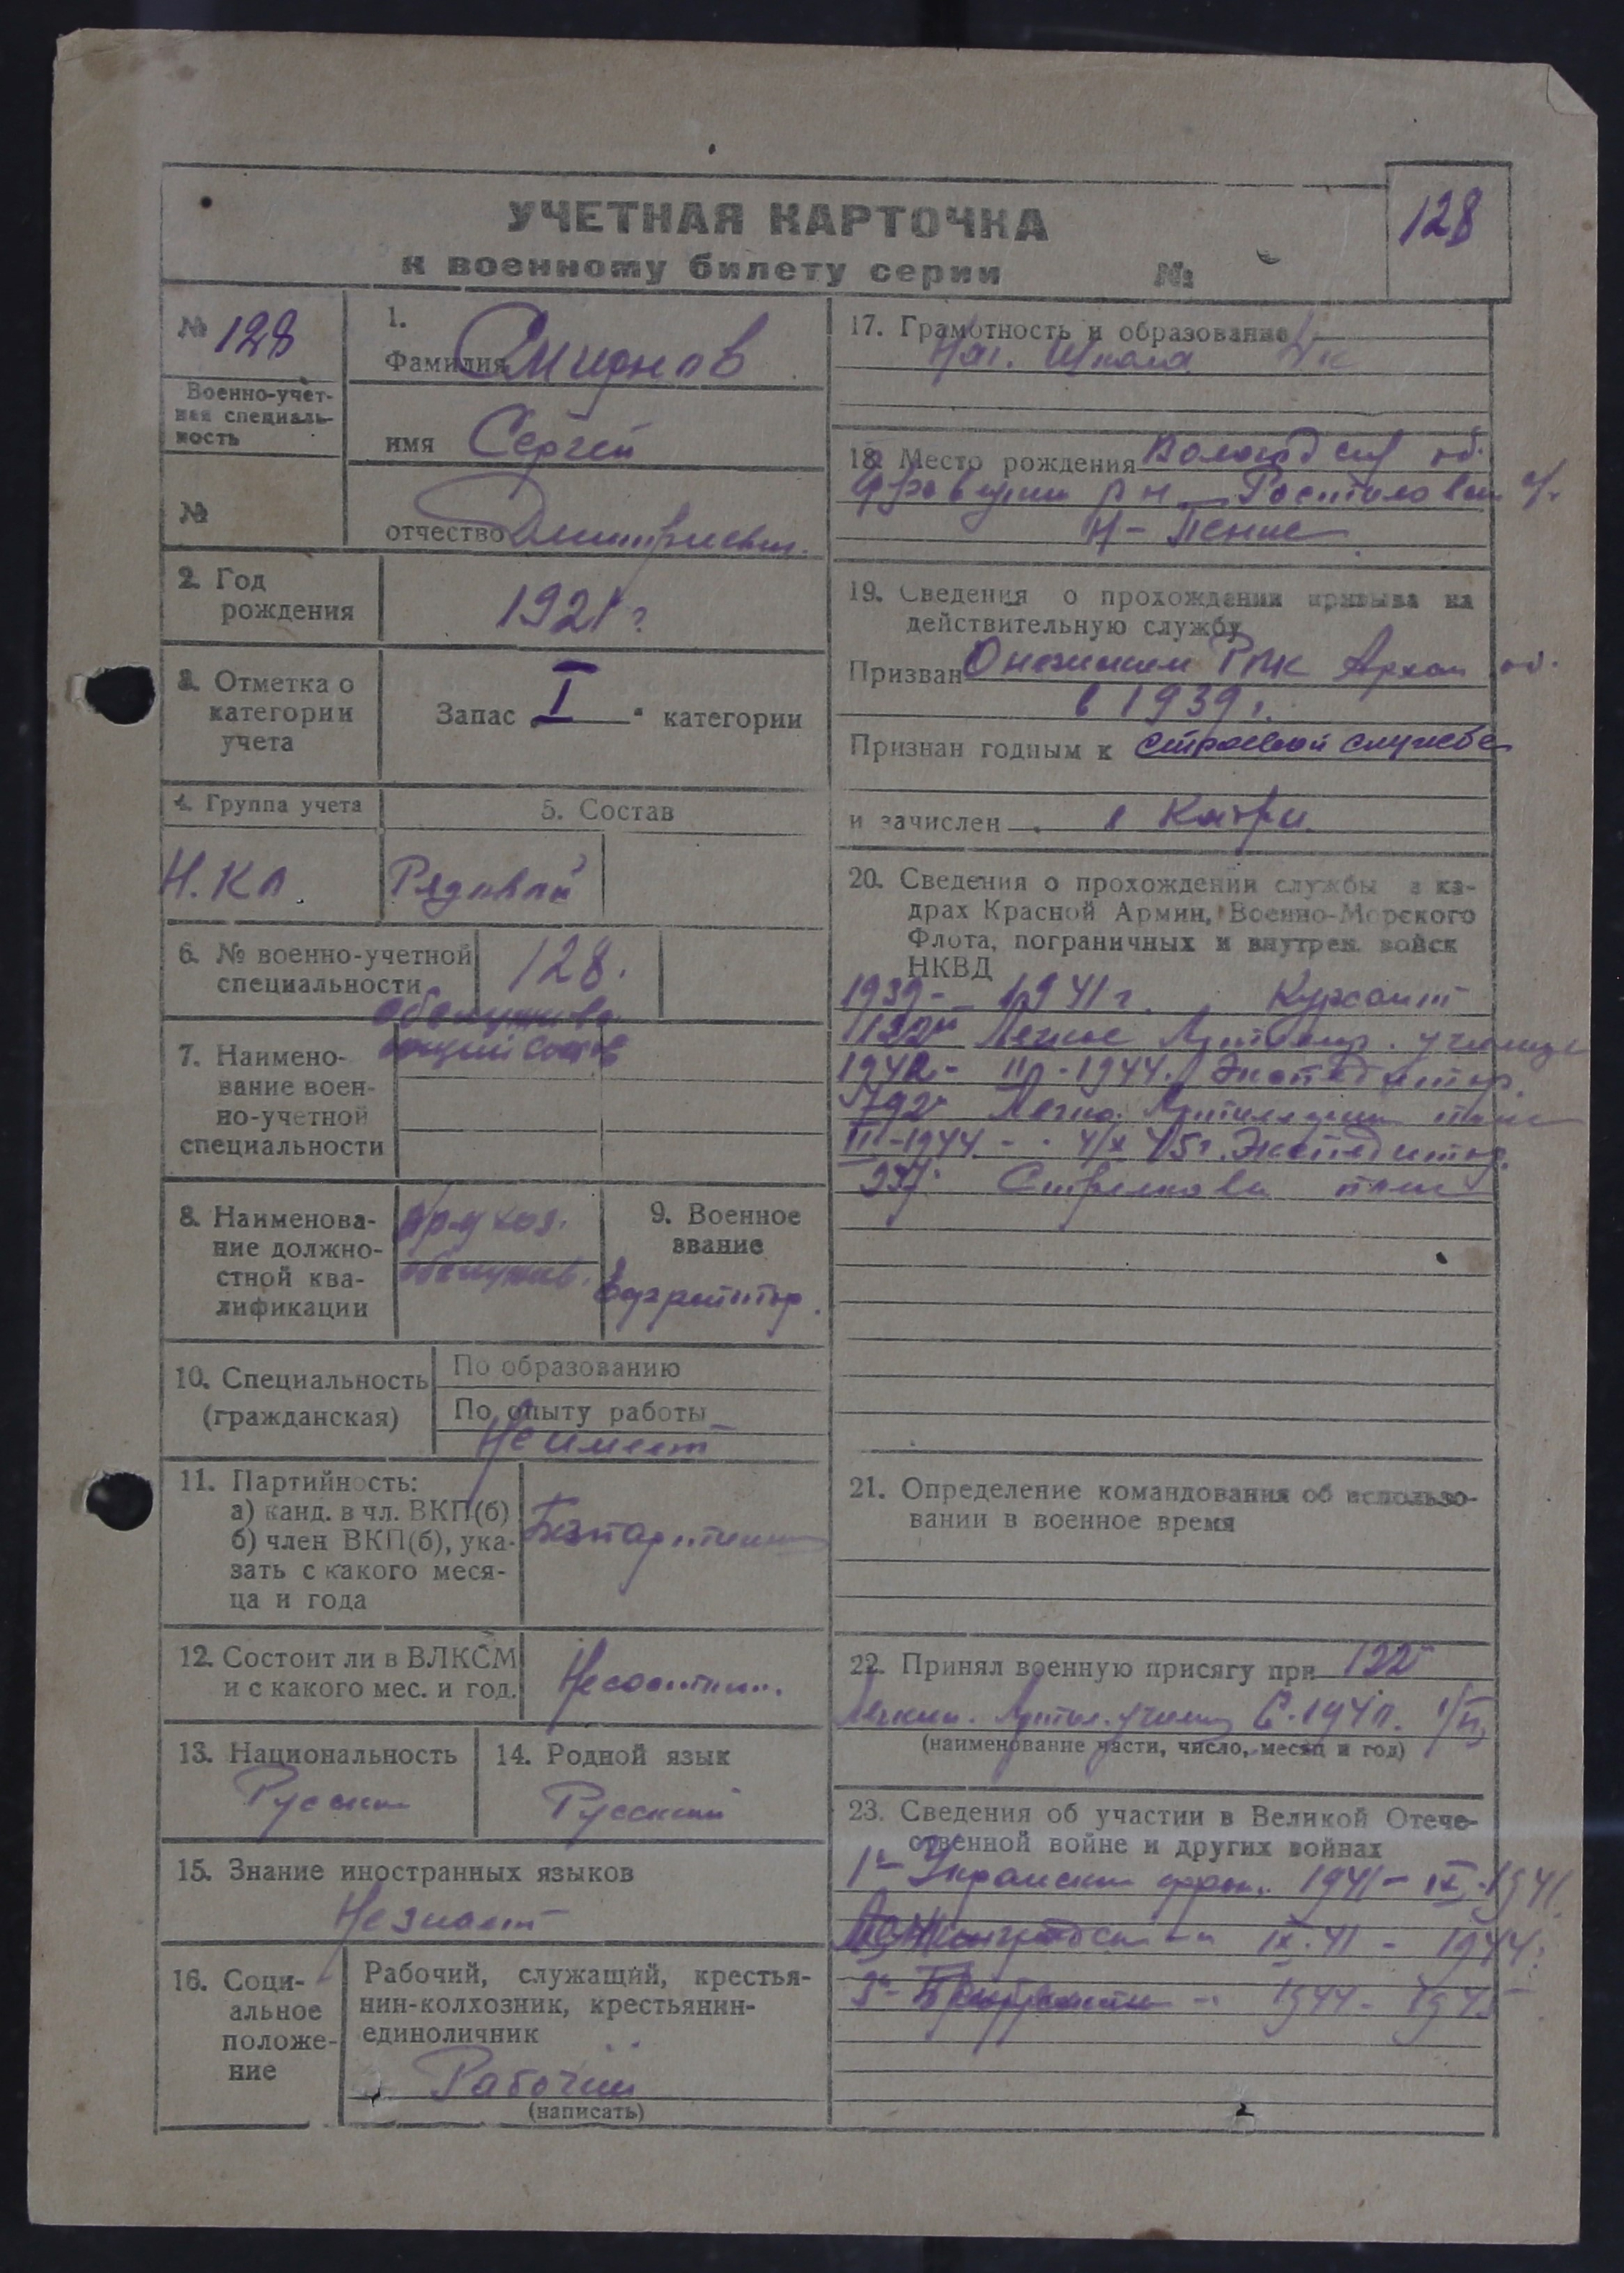 УЧЕТНАЯ КАРТОЧКА
к военному билету серии №
128
№ 128
Военно-учет-
ная специаль-
ность
№
1.
Фамилия Смирнов
имя Сергей
отчество Дмитриевич.
2. Год
рождения
1921 г.
3. Отметка о
категории
учета
Запас I категории
4. Группа учета
5. Состав
Рядовой
6. № военно-учетной
специальности
128.
7. Наимено-
вание воен-
но-учетной
специальности
обслужива-
ющий состав
8. Наименова-
ние должно-
стной ква-
лификации
обслужив.
9. Военное
звание
Ефрейтор.
10. Специальность
(гражданская)
По образованию
По опыту работы
Не имеет
11. Партийность:
а) канд. в чл. ВКП(б)
б) член ВКП(б), ука-
зать с какого меся-
ца и года
12. Состоит ли в ВЛКСМ
и с какого мес. и год.
13. Национальность
Русский
14. Родной язык
Русский
15. Знание иностранных языков
Не знает
16. Соци-
альное
положе-
ние
Рабочий, служащий, крестья-
нин-колхозник, крестьянин-
единоличник
Рабочий
(написать)
17. Грамотность и образование
Нач. школа
18. Место рождения Вологодск об.
19. Сведения о прохождении призыва на
действительную службу
Призван Онежским РВКАрхан об.
в 1939 г.
Признан годным к строевой службе
и зачислен
20. Сведения о прохождении службы в ка-
драх Красной Армии, Военно-Морского
Флота, пограничных и внутрен. войск
НКВД
1939 - 1941 г. Курсант
122й Легкое училище
1942 - 1944. Экспедитор.
III-1944 - 45 г. Экспедитор.
Стрелковый полк
21. Определение командования об использо-
вании в военное время
22. Принял военную присягу при 122й
(наименование части, число, месяц и год)
23. Сведения об участии в Великой Отече-
ственной войне и других войнах
1й Украинский фрон. 1941 - IX-1941
Ленинградский IX.41 - 1944.
1944 - 1945